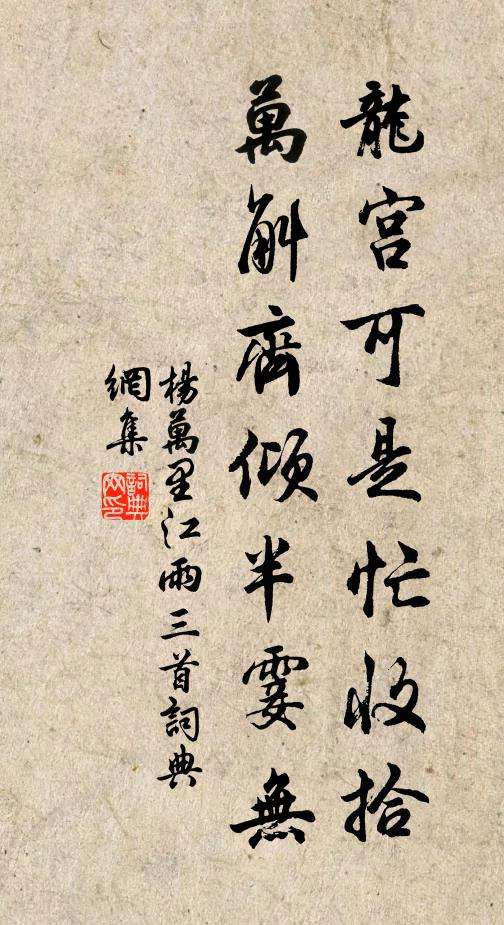 龍宮可是忙收拾
萬斛齊傾半霎無
楊萬里江雨三首詞典
網集
詞典
网印